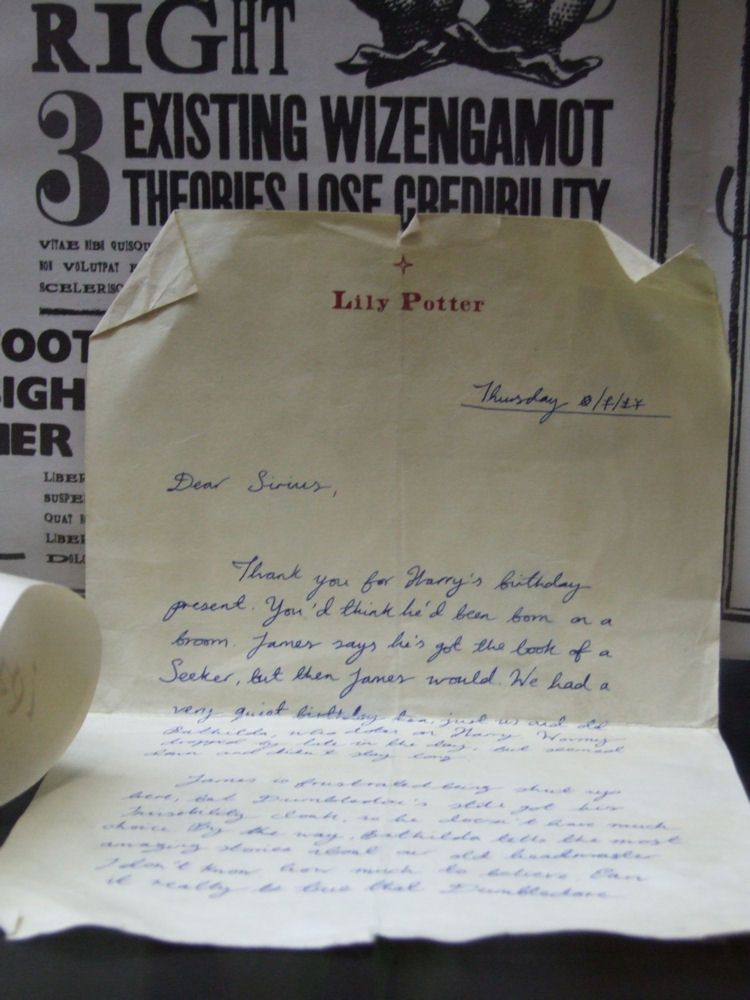 RIGHT
3 EXISTING WIZENGAMOT
THEORIES LOSE CREDIBILITY
VITAE NIBH QUISQU
NON VOLUTPAT
SCELERISQ
OOT
IGH
ER
LIBER
SUSPE
QUAT
LIBER
DOL
Lily Potter
Thursday
Dear Sirius,
Thank you for Harry's birthday
present. You'd think he'd been born on a
broom. James says he's got the look of a
Seeker, but then James would. We had a
very quiet birthday tea, just us and old
Bathilda, who dotes on Harry. Wormy
dropped by late in the day, but seemed
down and didn't stay long.
James is frustrated being shut up
here, but Dumbledore's still got his
Invisibility cloak, so he doesn't have much
choice. By the way, Bathilda tells the most
amazing stories about our old headmaster
I don't know how much to believe. Can
it really be true that Dumbledore